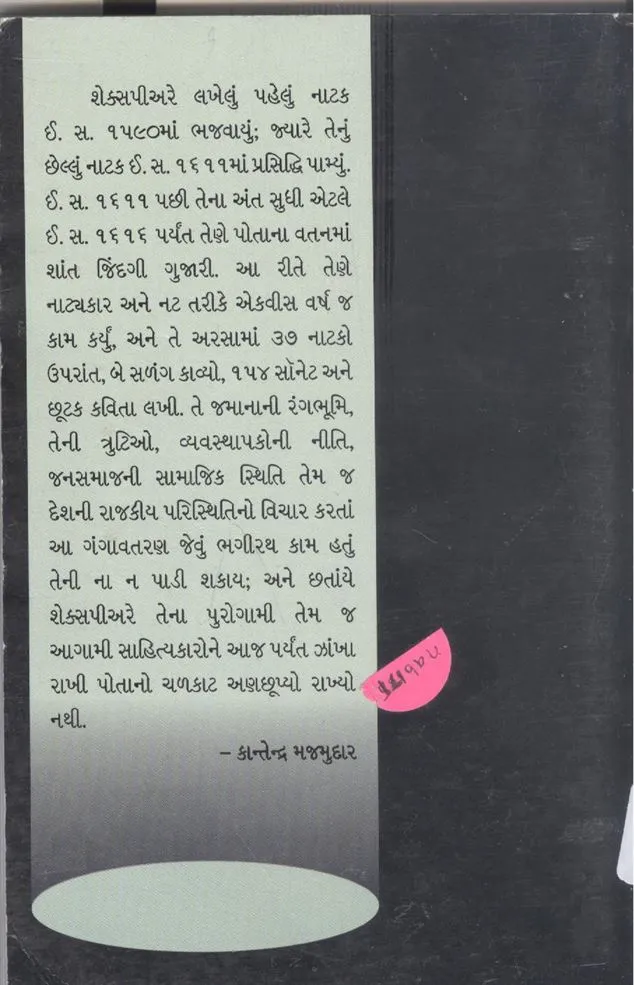 શેક્સપીઅરે લખેલું પહેલું નાટક
ઈ. સ. ૧૫૯૦માં ભજવાયું; જ્યારે તેનું
છેલ્લું નાટક ઈ. સ. ૧૬૧૧માં પ્રસિદ્ધિ પામ્યું.
ઈ. સ. ૧૬૧૧ પછી તેના અંત સુધી એટલે
ઈ. સ. ૧૬૧૬ પર્યંત તેણે પોતાના વતનમાં
શાંત જિંદગી ગુજારી. આ રીતે તેણે
નાટ્યકાર અને નટ તરીકે એકવીસ વર્ષ જ
કામ કર્યું, અને તે અરસામાં ૩૭ નાટકો
ઉપરાંત, બે સળંગ કાવ્યો, ૧૫૪ સૉનેટ અને
છૂટક કવિતા લખી. તે જમાનાની રંગભૂમિ,
તેની ત્રુટિઓ, વ્યવસ્થાપકોની નીતિ,
જનસમાજની સામાજિક સ્થિતિ તેમ જ
દેશની રાજકીય પરિસ્થિતિનો વિચાર કરતાં
આ ગંગાવતરણ જેવું ભગીરથ કામ હતું
તેની ના ન પાડી શકાય; અને છતાંયે
શેક્સપીઅરે તેના પુરોગામી તેમ જ
આગામી સાહિત્યકારોને આજ પર્યંત ઝાંખા
રાખી પોતાનો ચળકાટ અણછૂપ્યો રાખ્યો
નથી.
– કાન્તેન્દ્ર મજમુદાર